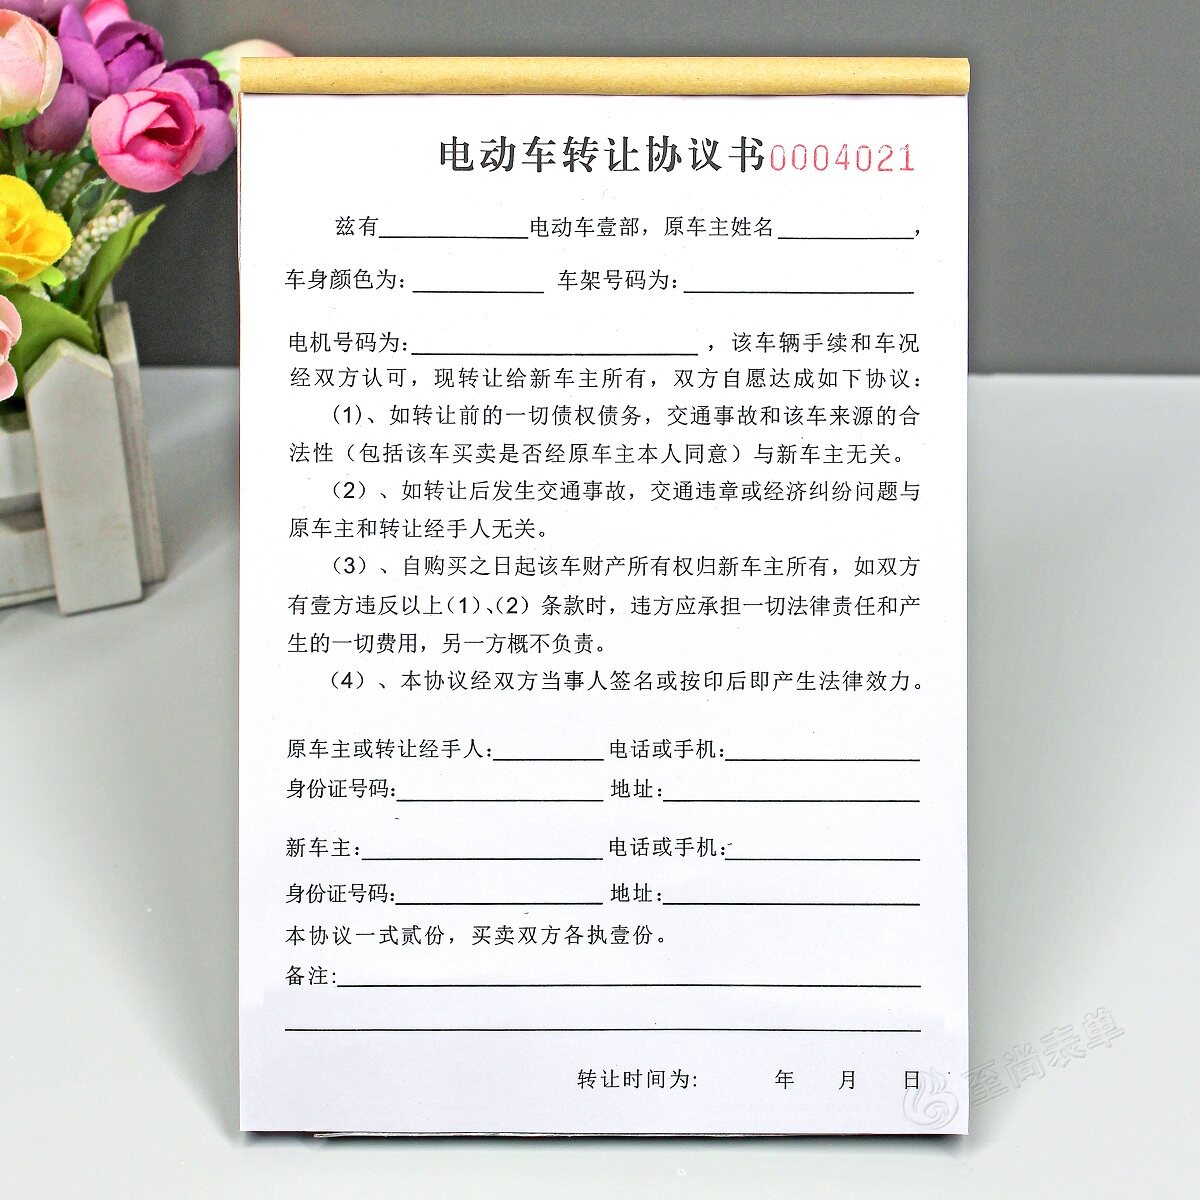 电动车转让协议书0004021
兹有____________电动车壹部，原车主姓名____________，
车身颜色为:____________ 车架号码为:____________________
电机号码为:________________________，该车辆手续和车况
经双方认可，现转让给新车主所有，双方自愿达成如下协议：
(1)、如转让前的一切债权债务，交通事故和该车来源的合
法性（包括该车买卖是否经原车主本人同意）与新车主无关。
（2）、如转让后发生交通事故，交通违章或经济纠纷问题与
原车主和转让经手人无关。
（3）、自购买之日起该车财产所有权归新车主所有，如双方
有壹方违反以上(1)、(2）条款时，违方应承担一切法律责任和产
生的一切费用，另一方概不负责。
（4）、本协议经双方当事人签名或按印后即产生法律效力。
原车主或转让经手人:__________电话或手机:________________
身份证号码:__________________地址:______________________
新车主:______________________电话或手机:________________
身份证号码:__________________地址:______________________
本协议一式贰份，买卖双方各执壹份。
备注:__________________________________________________
转让时间为: 年 月 日
至尚表单